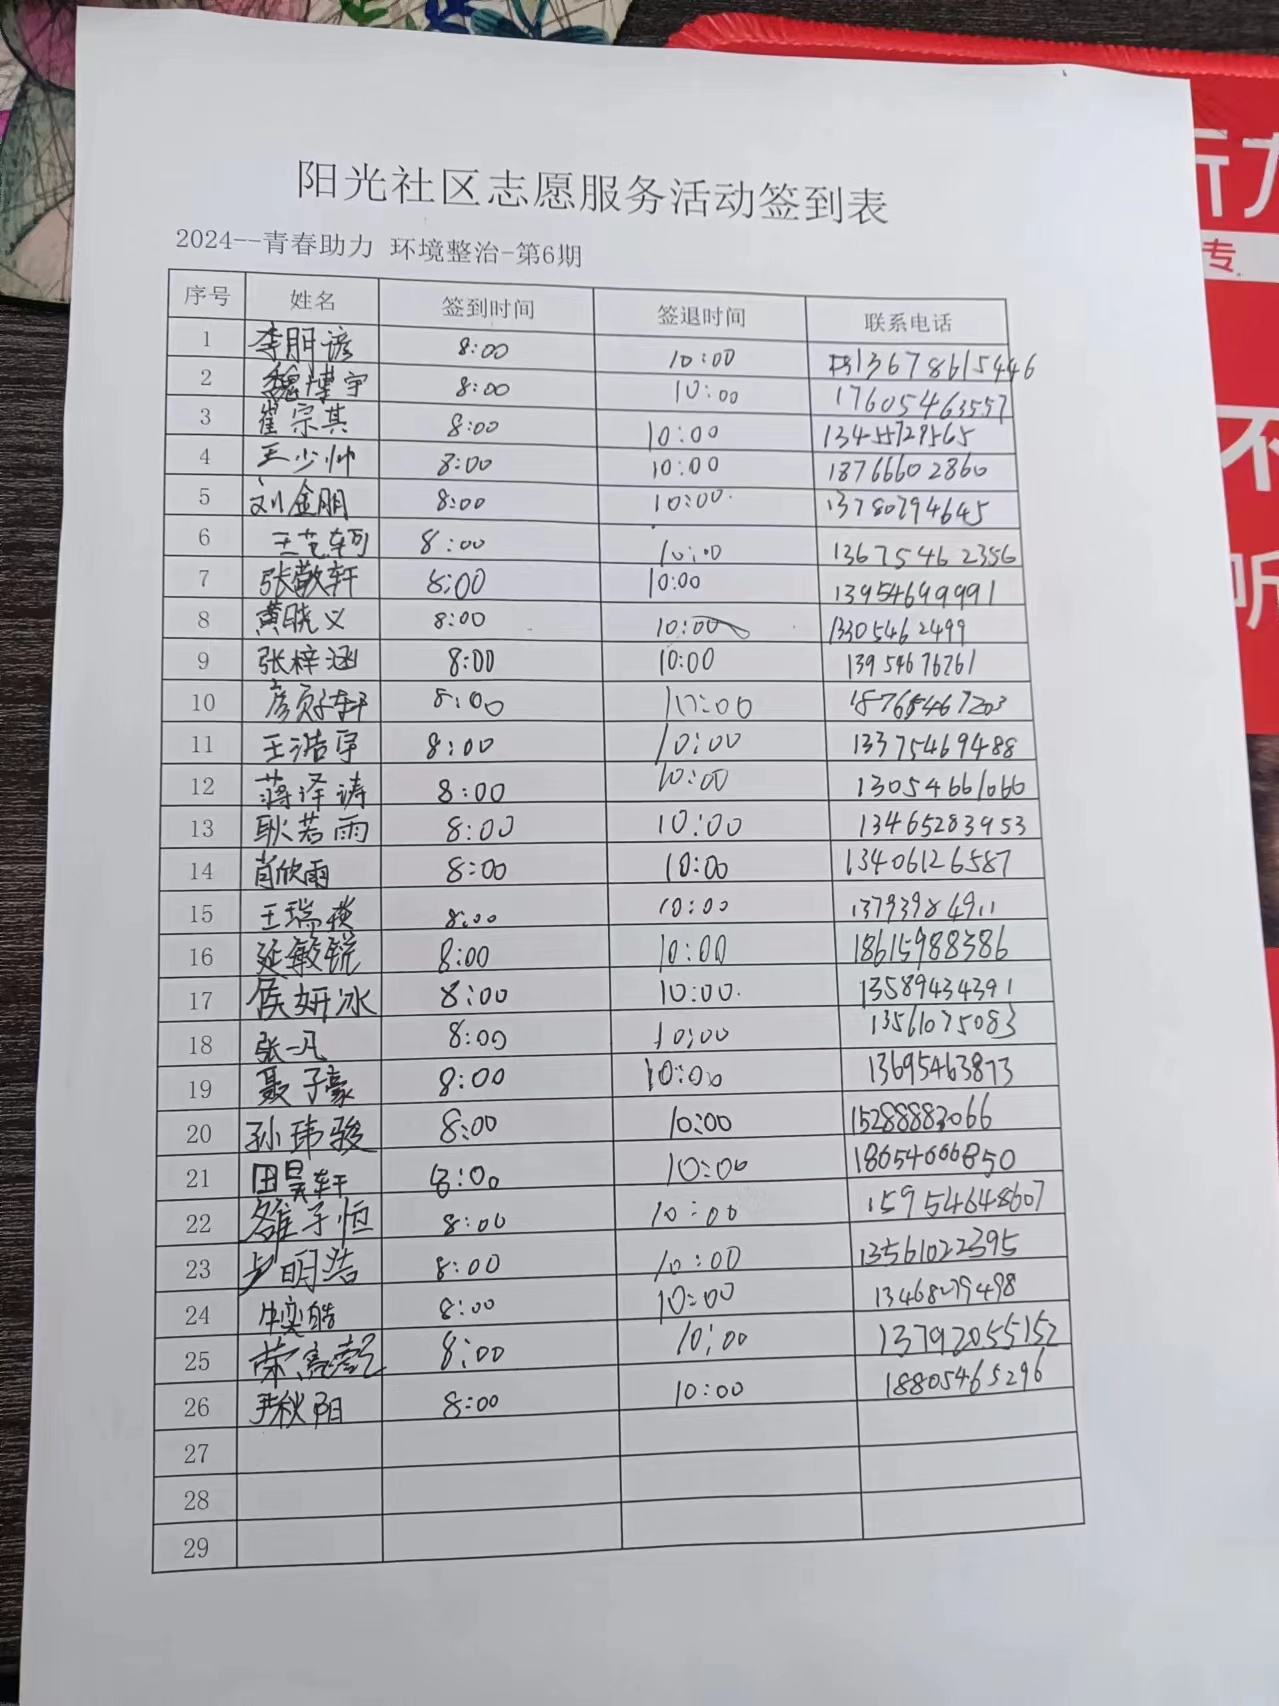 阳光社区志愿服务活动签到表
2024--青春助力 环境整治-第6期
序号 姓名 签到时间 签退时间 联系电话
1 李朋谚 8:00 10:00 13678615446
2 魏博宇 8:00 10:00 17605463557
3 崔宗其 8:00 10:00
4 王少帅 8:00 10:00 18766602860
5 刘金朋 8:00 10:00 13780794645
6 王艺轲 8:00 10:00 13675462356
7 张敬轩 8:00 10:00 13954699991
8 黄晓义 8:00 10:00 13305462499
9 张梓涵 8:00 10:00 13954676761
10 8:00 10:00 18765467203
11 王浩宇 8:00 10:00 13375469488
12 蒋泽涛 8:00 10:00 13054661066
13 耿若雨 8:00 10:00 13465283953
14 肖欣雨 8:00 10:00 13406126587
15 8:00 10:00 13793984911
16 延敏锐 8:00 10:00 18615988386
17 侯妍冰 8:00 10:00 13589434391
18 张一凡 8:00 10:00 13561075083
19 聂子豪 8:00 10:00 13695463873
20 孙玮骏 8:00 10:00 15288883066
21 田昊轩 8:00 10:00 18654666850
22 8:00 10:00 15954648607
23 步明浩 8:00 10:00 13561022395
24 牛奕皓 8:00 10:00 13468279498
25 8:00 10:00 13792055152
26 尹秋阳 8:00 10:00 18805465296
27
28
29
专
不
听